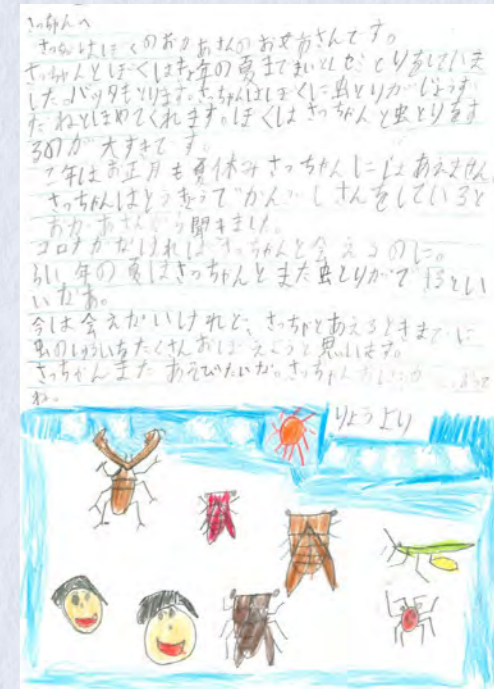 さっちゃんへ
さっちゃんはぼくのおかあさんのお母さんです。
さっちゃんとぼくは去年の夏までまいとしせみとりをしていま
した。バッタもとります。さっちゃんはぼくに虫とりがじょうず
だねとほめてくれます。ぼくはさっちゃんと虫とりをす
るのが大すきです。
二年はお正月も夏休みさっちゃんにはあえません。
さっちゃんはとうきょうでかんごしさんをしていると
おかあさんから聞きました。
コロナがなければさっちゃんと会えるのに。
らい年の夏はさっちゃんとまた虫とりができるとい
いなあ。
今は会えないけれど、さっちゃとあえるときまでに
虫のしゅるいをたくさんおぼえようと思います。
さっちゃんまたあそびたいな。さっちゃん
ね。
りょうより